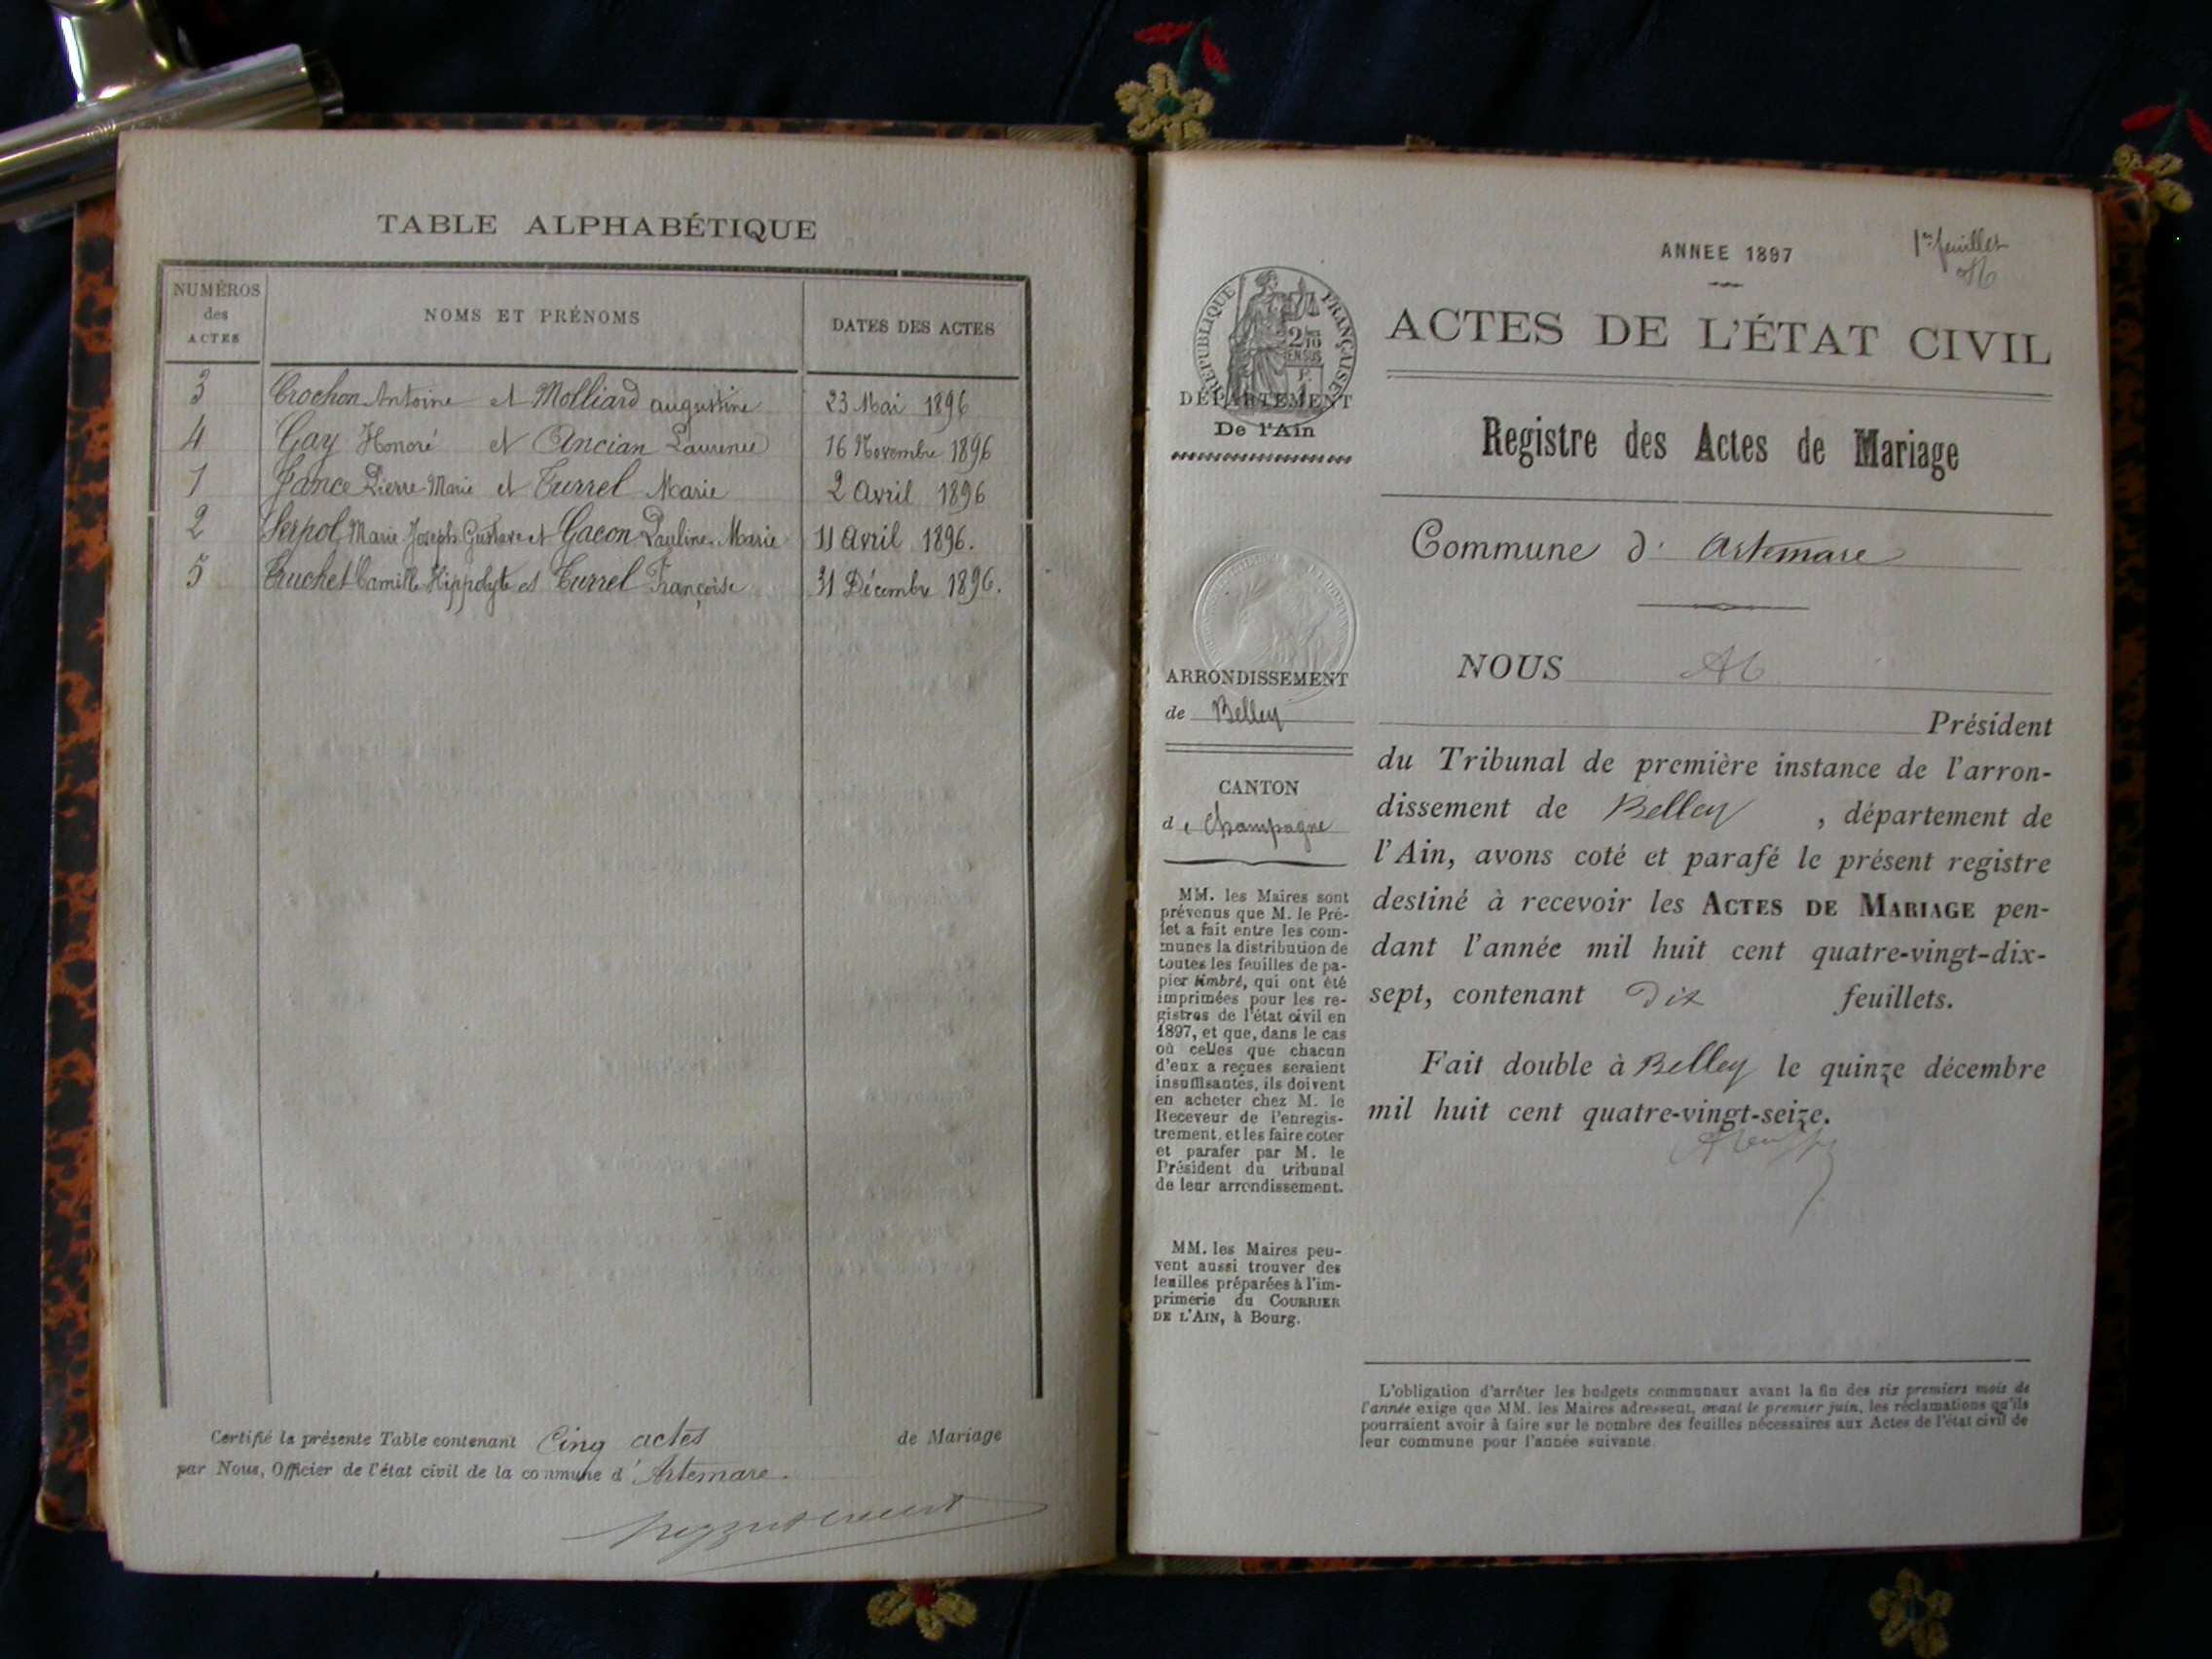 TABLE ALPHABÉTIQUE
NUMÉROS
des
ACTES
NOMS ET PRÉNOMS
DATES DES ACTES
3 Crochon Antoine et Molliard augustine 23 Mai 1896
4 Gay Honoré et Ancian Laurence 16 Novembre 1896
1 Jance Pierre Marie et Turrel Marie 2 Avril 1896
2 Serpol Marie Joseph Gustave et Gacon Pauline Marie 11 Avril 1896.
5 Truchet Camille Hippolyte et Turrel Françoise 31 Décembre 1896.
Certifié la présente Table contenant Cinq actes de Mariage
par Nous, Officier de l'état civil de la commune d'Artemare.
ANNEE 1897
1er feuillet
RÉPUBLIQUE FRANÇAISE
2/10
EN SUS
DÉPARTEMENT
De l'Ain
ARRONDISSEMENT
de Belley
CANTON
de Champagne
MM. les Maires sont
prévenus que M. le Pré-
fet a fait entre les com-
munes la distribution de
toutes les feuilles de pa-
pier timbré, qui ont été
imprimées pour les re-
gistres de l'état civil en
1897, et que, dans le cas
où celles que chacun
d'eux a reçues seraient
insuffisantes, ils doivent
en acheter chez M. le
Receveur de l'enregis-
trement, et les faire coter
et parafer par M. le
Président du tribunal
de leur arrondissement.
MM. les Maires peu-
vent aussi trouver des
feuilles préparées à l'im-
primerie du COURRIER
DE L'AIN, à Bourg.
ACTES DE L'ÉTAT CIVIL
Registre des Actes de Mariage
Commune d'Artemare
NOUS
Président
du Tribunal de première instance de l'arron-
dissement de Belley, département de
l'Ain, avons coté et parafé le présent registre
destiné à recevoir les ACTES DE MARIAGE pen-
dant l'année mil huit cent quatre-vingt-dix-
sept, contenant dix feuillets.
Fait double à Belley le quinze décembre
mil huit cent quatre-vingt-seize.
L'obligation d'arrêter les budgets communaux avant la fin des six premiers mois de
l'année exige que MM. les Maires adressent, avant le premier juin, les réclamations qu'ils
pourraient avoir à faire sur le nombre des feuilles nécessaires aux Actes de l'état civil de
leur commune pour l'année suivante.